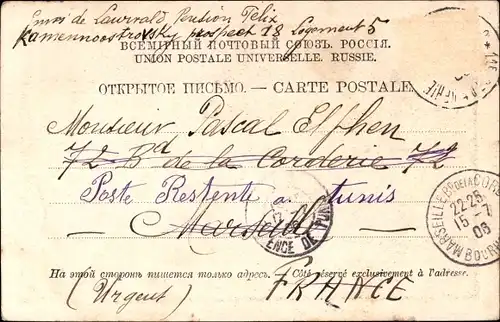 Envoi de Lauwald Pension Felix
Kamennoostrovsky prospect 18 Logement 5
ВСЕМІРНЫЙ ПОЧТОВЫЙ СОЮЗЪ. РОССІЯ.
UNION POSTALE UNIVERSELLE. RUSSIE.
ОТКРЫТОЕ ПИСЬМО. — CARTE POSTALE.
Monsieur Pascal Elphen
72 Bd de la Corderie 72
Poste Restente a tunis
Marseille
MARSEILLE
22-25
15-7
06
На этой сторонѣ пишется только адресъ.
Côté réservé exclusivement à l'adresse.
(Urgent)
FRANCE